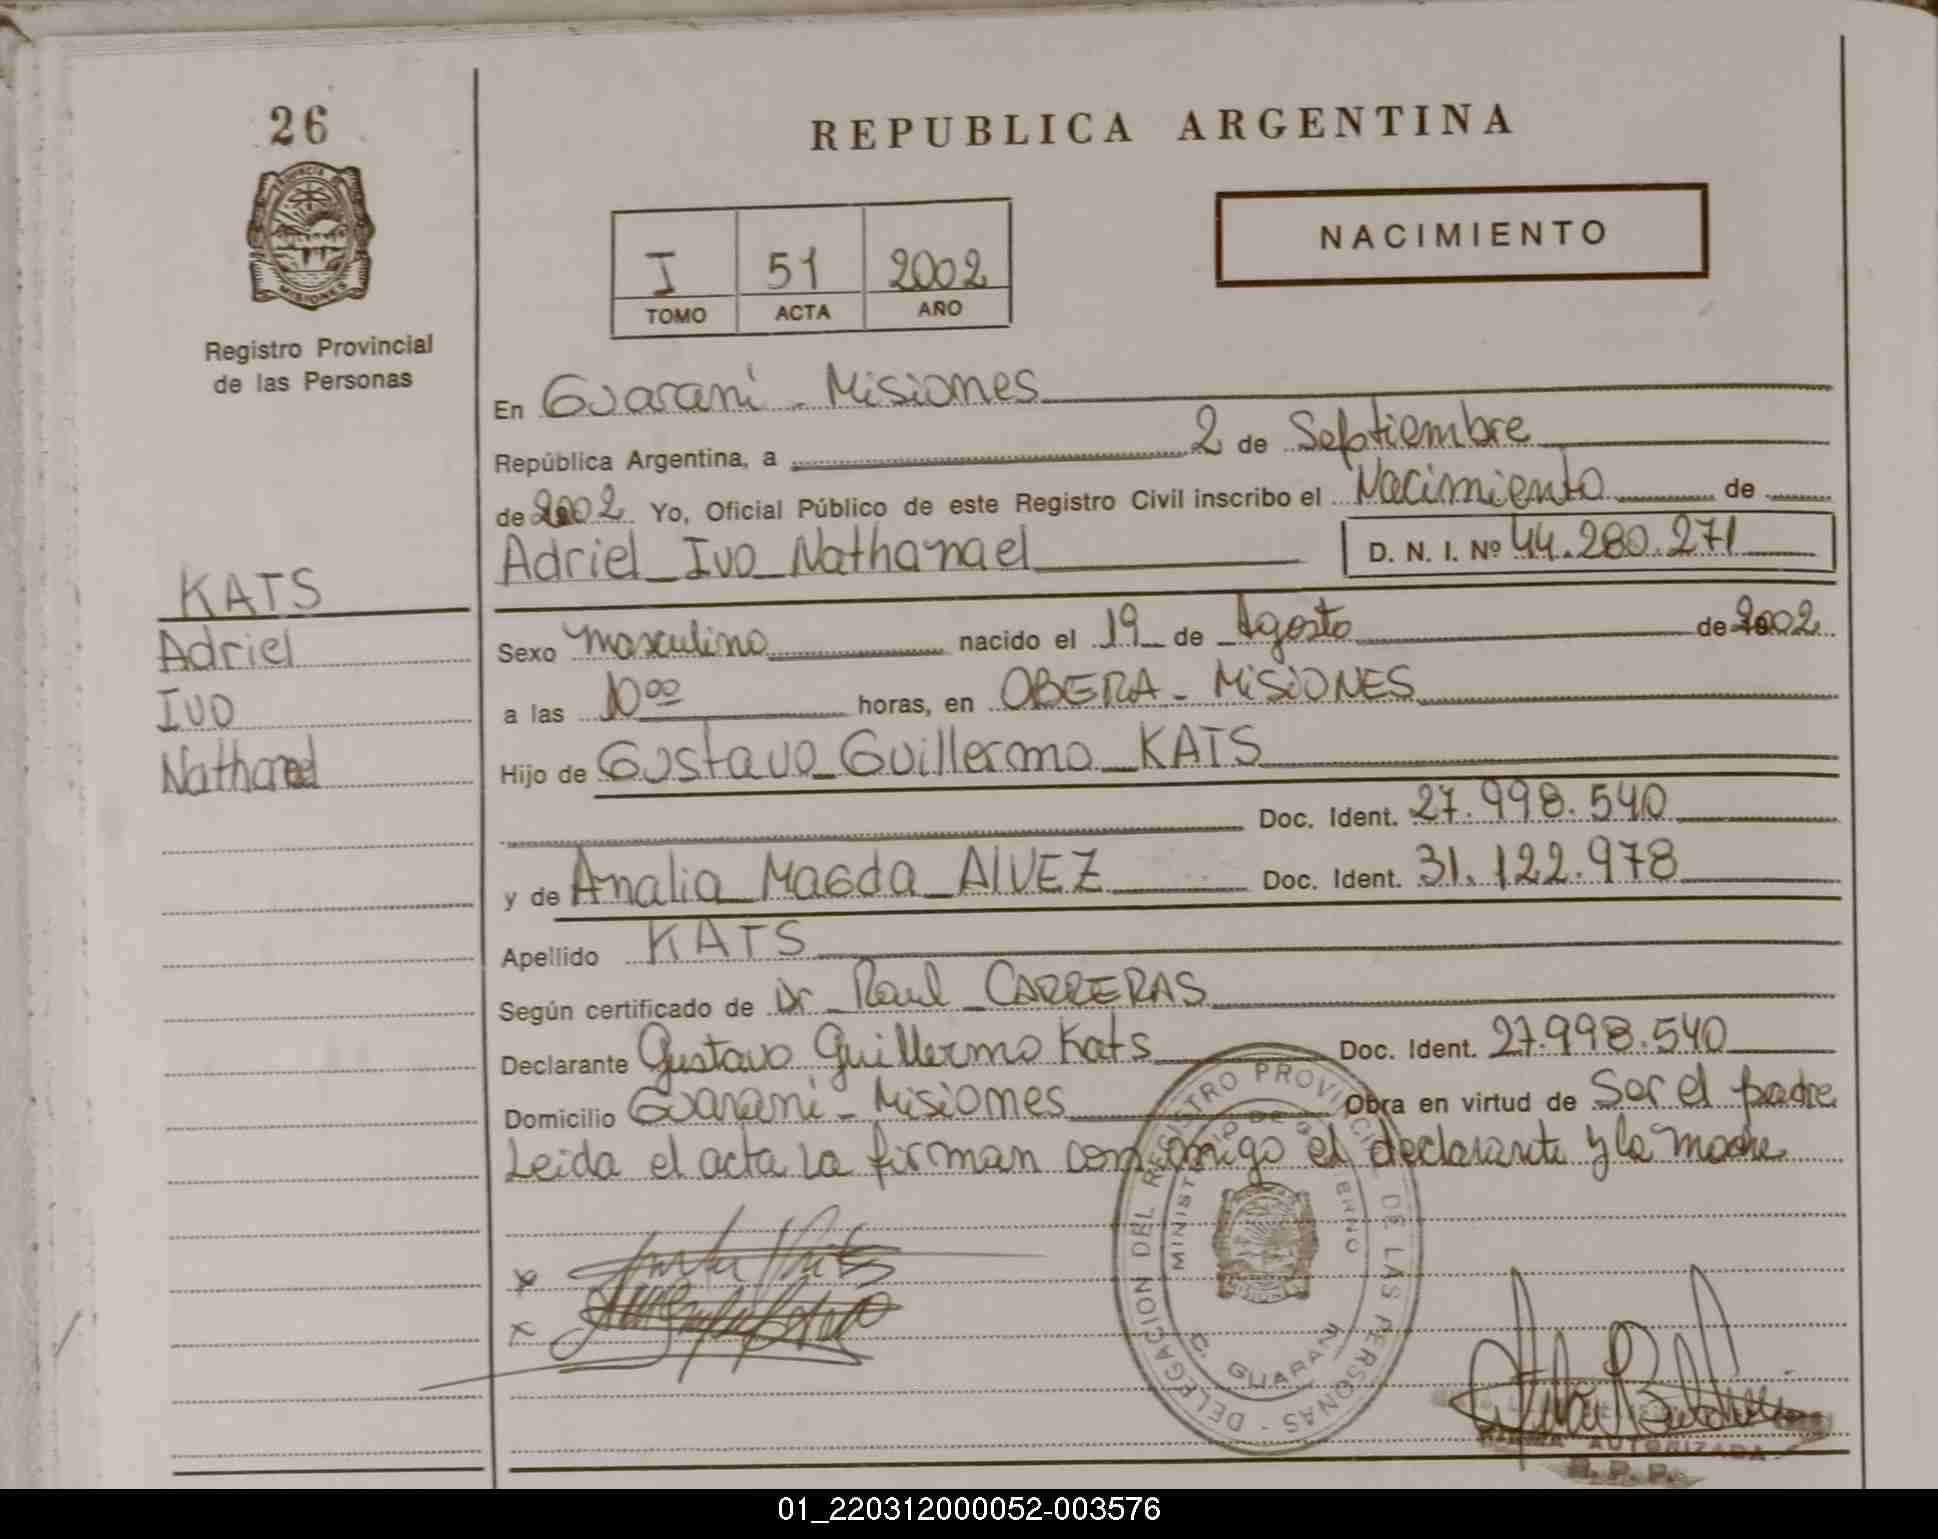 26
PROVINCIA
MISIONES
Registro Provincial
de las Personas
REPUBLICA ARGENTINA
NACIMIENTO
I 51 2002
TOMO ACTA AÑO
En Guaraní - Misiones
República Argentina, a 2 de Septiembre
de 2002 Yo, Oficial Público de este Registro Civil inscribo el Nacimiento de
Adriel Ivo Nathanael D. N. I. Nº 44.280.271
KATS
Adriel
Ivo
Nathanael
Sexo masculino nacido el 19 de Agosto de 2002
a las 10 00 horas, en OBERA - MISIONES
Hijo de Gustavo Guillermo KATS
Doc. Ident. 27.998.540
y de Analia Magda AlVEZ Doc. Ident. 31.122.978
Apellido KATS
Según certificado de Dr Raul CARRERAS
Declarante Gustavo Guillermo Kats Doc. Ident. 27.998.540
Domicilio Guaraní - Misiones Obra en virtud de Ser el padre
Leida el acta la firman conmigo el declarante y la madre
DELEGACION DEL REGISTRO PROVINCIAL DE LAS PERSONAS -
MINISTERIO DE GOBIERNO
C. GUARANI
FIRMA AUTORIZADA
R. P. P.
01_220312000052-003576